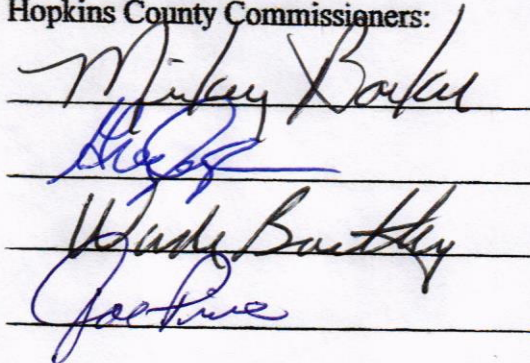 Hopkins County Commissioners:
Mickey Barker
Wade Bartley
Joe Price